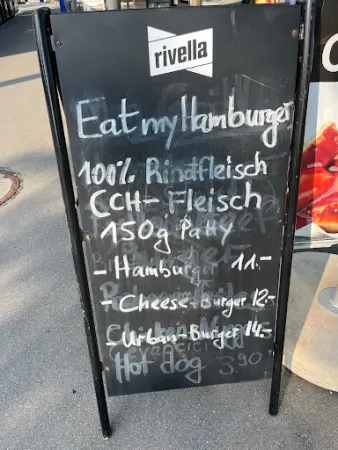 rivella
Eat my Hamburger
100% Rindfleisch
CCH-Fleisch
150g Patty
-Hamburger 11.-
-Cheese-Burger 12.-
-Urban-Burger 14.-
Hot dog 3.90